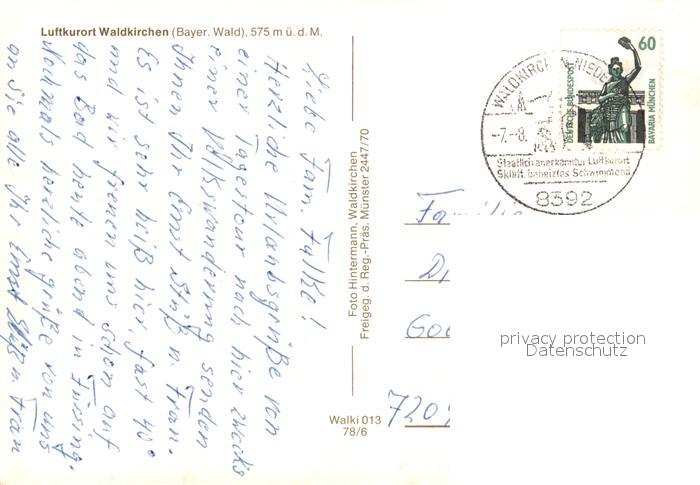 Luftkurort Waldkirchen (Bayer. Wald), 575 m ü. d. M.
Liebe Fam. Falke!
Herzliche Urlaubsgrüße von
einer Tagestour nach hier zwecks
einer Volkswanderung senden
Ihnen Ihr Ernst u. Frau.
Es ist sehr heiß hier, fast 40°
und wir freuen uns schon auf
das Bad heute abend in Füssing.
Nochmals herzliche Grüße von uns
an Sie alle Ihr Ernst u. Frau
Foto Hintermann, Waldkirchen
Freigeg. d. Reg.-Präs. Münster 2447/70
Walki 013
78/6
60
DEUTSCHE BUNDESPOST
BAVARIA MÜNCHEN
WALDKIRCHEN, NIEDE
-7.-8.
Staatlich anerkannter Luftkurort
Skilift, beheiztes Schwimmbad
8392
Familie
D
Go
720
privacy protection
Datenschutz